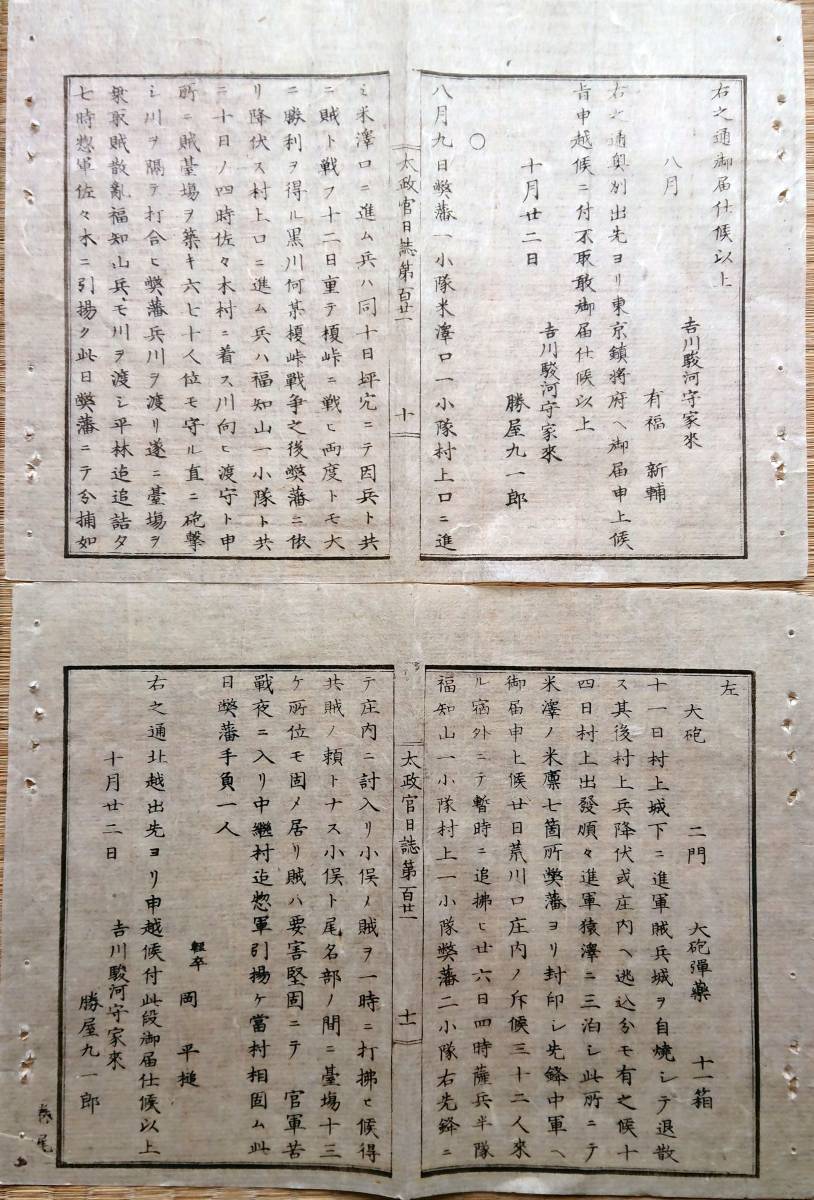 右之通御届仕候以上
八月
吉川駿河守家來
有福　新輔
右之通奧羽出先ヨリ東京鎮將府ヘ御届申上候
旨申越候ニ付不取敢御届仕候以上
吉川駿河守家來
十月廿二日
勝屋九一郎
〇
八月九日弊藩一小隊米澤口一小隊村上口ニ進
太政官日誌第百廿一
十
ミ米澤口ニ進ム兵ハ同十日坪穴ニテ因兵ト共
ニ賊ト戰フ十二日重テ榎峠ニ戰ヒ両度トモ大
ニ勝利ヲ得ル黒川何某榎峠戰争之後弊藩ニ依
リ降伏ス村上口ニ進ム兵ハ福知山一小隊ト共
ニ十日ノ四時佐々木村ニ着ス川向ヒ渡守ト申
所ニ賊臺場ヲ築キ六七十人位モ守ル直ニ砲撃
シ川ヲ隔テ打合ヒ弊藩兵川ヲ渡リ遂ニ臺場ヲ
乗取賊散亂福知山兵モ川ヲ渡シ平林迠追詰タ
七時惣軍佐々木ニ引揚ク此日弊藩ニテ分捕如
左
大砲　二門　大砲彈藥　十一箱
十一日村上城下ニ進軍賊兵城ヲ自燒シテ退散
ス其後村上兵降伏或庄内ヘ逃込分モ有之候十
四日村上出發頻々進軍猿澤ニ三泊シ此所ニテ
米澤ノ米廪七箇所弊藩ヨリ封印シ先鋒中軍ヘ
御届申上候廿日荒川口庄内ノ斥候三十二人來
ル宿外ニテ暫時ニ追拂ヒ廿六日四時薩兵半隊
福知山一小隊村上一小隊弊藩二小隊右先鋒ニ
太政官日誌第百廿一
十一
テ庄内ニ討入リ小俣ノ賊ヲ一時ニ打拂ヒ候得
共賊ノ頼トナス小俣ト尾名部ノ間ニ臺場十三
ケ所位モ固メ居リ賊ハ要害堅固ニテ　官軍苦
戰夜ニ入リ中繼村迠惣軍引揚ケ當村相固ム此
日弊藩手負一人
輕卒　岡　平槌
右之通北越出先ヨリ申越候付此段御届仕候以上
吉川駿河守家來
十月廿二日
勝屋九一郎